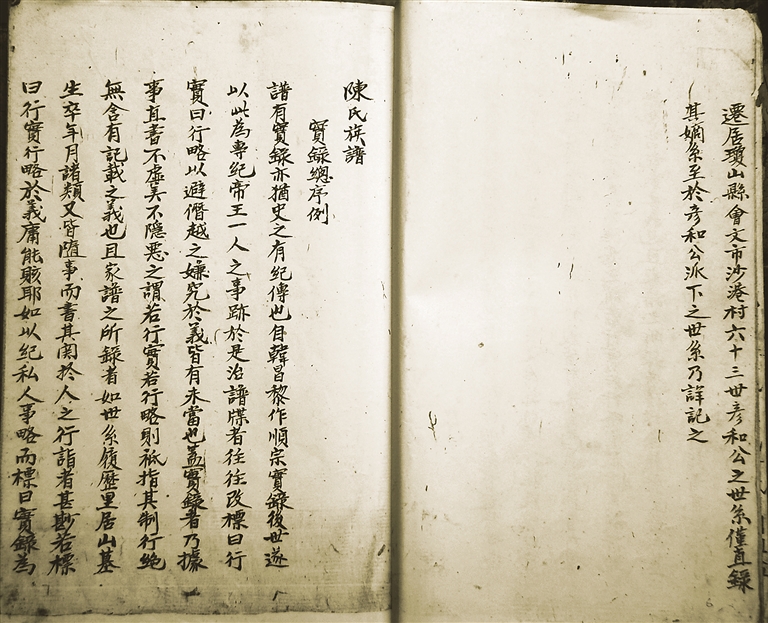 遷居瓊山縣會文市沙港村六十三世彥和公之世系僅直錄
其嫡系至於彥和公派下之世系乃詳記之
陳氏族譜
實錄總序例
譜有實錄亦猶史之有紀傳也自韓昌黎作順宗實錄後世遂
以此為專紀帝王一人之事跡於是治譜牒者往往改標曰行
實曰行略以避僭越之嫌究於義皆有未當也盖實錄者乃據
事直書不虛美不隱惡之謂若行實若行略則祇指其制行絕
無含有記載之義也且家譜之所錄者如世系履歷里居山墓
生卒年月諸類又皆隨事而書其関於人之行詣者甚尠若標
曰行實行略於義庸能賅耶如以紀私人事略而標曰實錄為